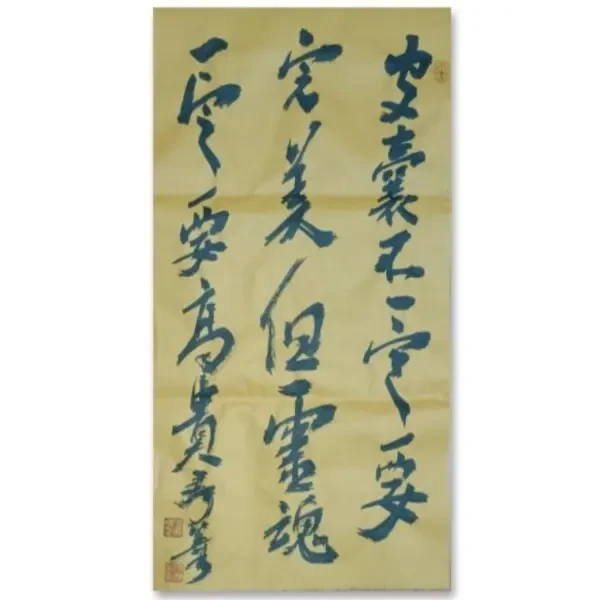 皮囊不一定要
完美但靈魂
一定要高貴